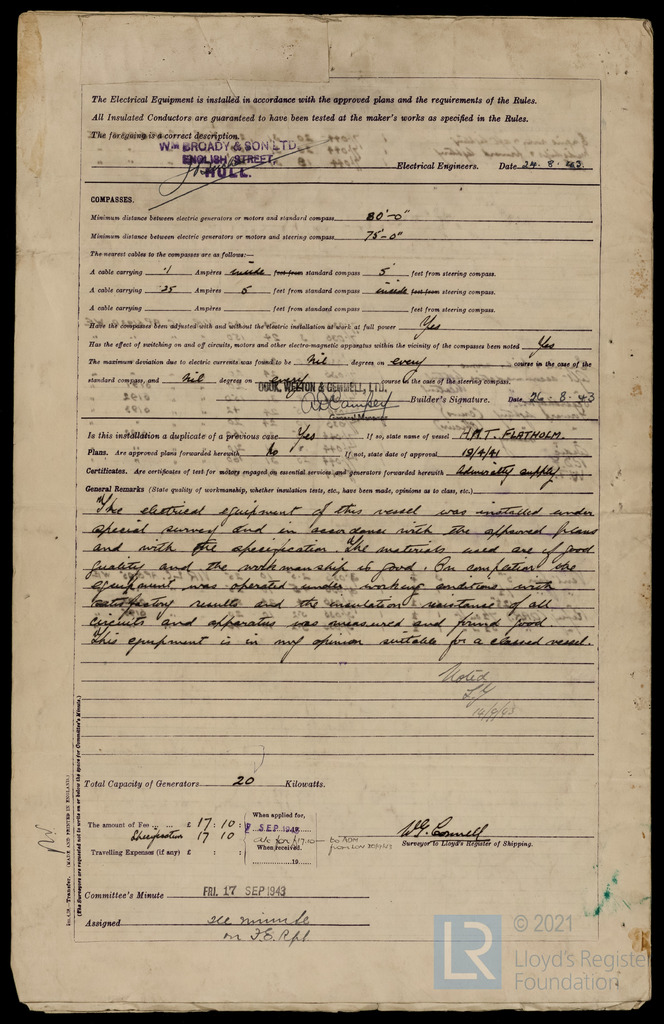 The Electrical Equipment is installed in accordance with the approved plans and the requirements of the Rules.
All Insulated Conductors are guaranteed to have been tested at the maker's works as specified in the Rules.
The foregoing is a correct description.
WM BROADY & SON LTD.
ENGLISH STREET,
HULL.
Electrical Engineers. Date 24.8.43.
COMPASSES.
Minimum distance between electric generators or motors and standard compass 80'-0"
Minimum distance between electric generators or motors and steering compass 75'-0"
The nearest cables to the compasses are as follows:—
A cable carrying .1 Ampères inside feet from standard compass 5' feet from steering compass.
A cable carrying .25 Ampères 5 feet from standard compass inside feet from steering compass.
A cable carrying Ampères feet from standard compass feet from steering compass.
Have the compasses been adjusted with and without the electric installation at work at full power Yes
Has the effect of switching on and off circuits, motors and other electro-magnetic apparatus within the vicinity of the compasses been noted Yes
The maximum deviation due to electric currents was found to be Nil degrees on every course in the case of the
standard compass, and Nil degrees on every course in the case of the steering compass.
COOK, WELTON & GEMMELL, LTD.
Builder's Signature. Date 26.8.43
General Manager
Is this installation a duplicate of a previous case Yes If so, state name of vessel H.M.T. FLATHOLM.
Plans. Are approved plans forwarded herewith No If not, state date of approval 19/4/41
Certificates. Are certificates of test for motors engaged on essential services and generators forwarded herewith Admiralty supply
General Remarks (State quality of workmanship, whether insulation tests, etc., have been made, opinions as to class, etc.)
The electrical equipment of this vessel was installed under
special survey and in accordance with the approved plans
and with the specification. The materials used are of good
quality and the workmanship is good. On completion the
equipment was operated under working conditions with
satisfactory results and the insulation resistance of all
circuits and apparatus was measured and found good.
This equipment is in my opinion suitable for a classed vessel.
Noted
14/9/43
Total Capacity of Generators 20 Kilowatts.
The amount of Fee £ 17 : 10 :
Specification 17 10
Travelling Expenses (if any) £ : :
When applied for,
SEP 1943
When received,
19
W.G. Connell
Surveyor to Lloyd's Register of Shipping.
Committee's Minute FRI. 17 SEP 1943
Assigned see minute
on F.E. Rpt
Transfer. (MADE AND PRINTED IN ENGLAND.)
(The Surveyors are requested not to write on or below the space for Committee's Minute.)
© 2021
LR
Lloyd's Register
Foundation